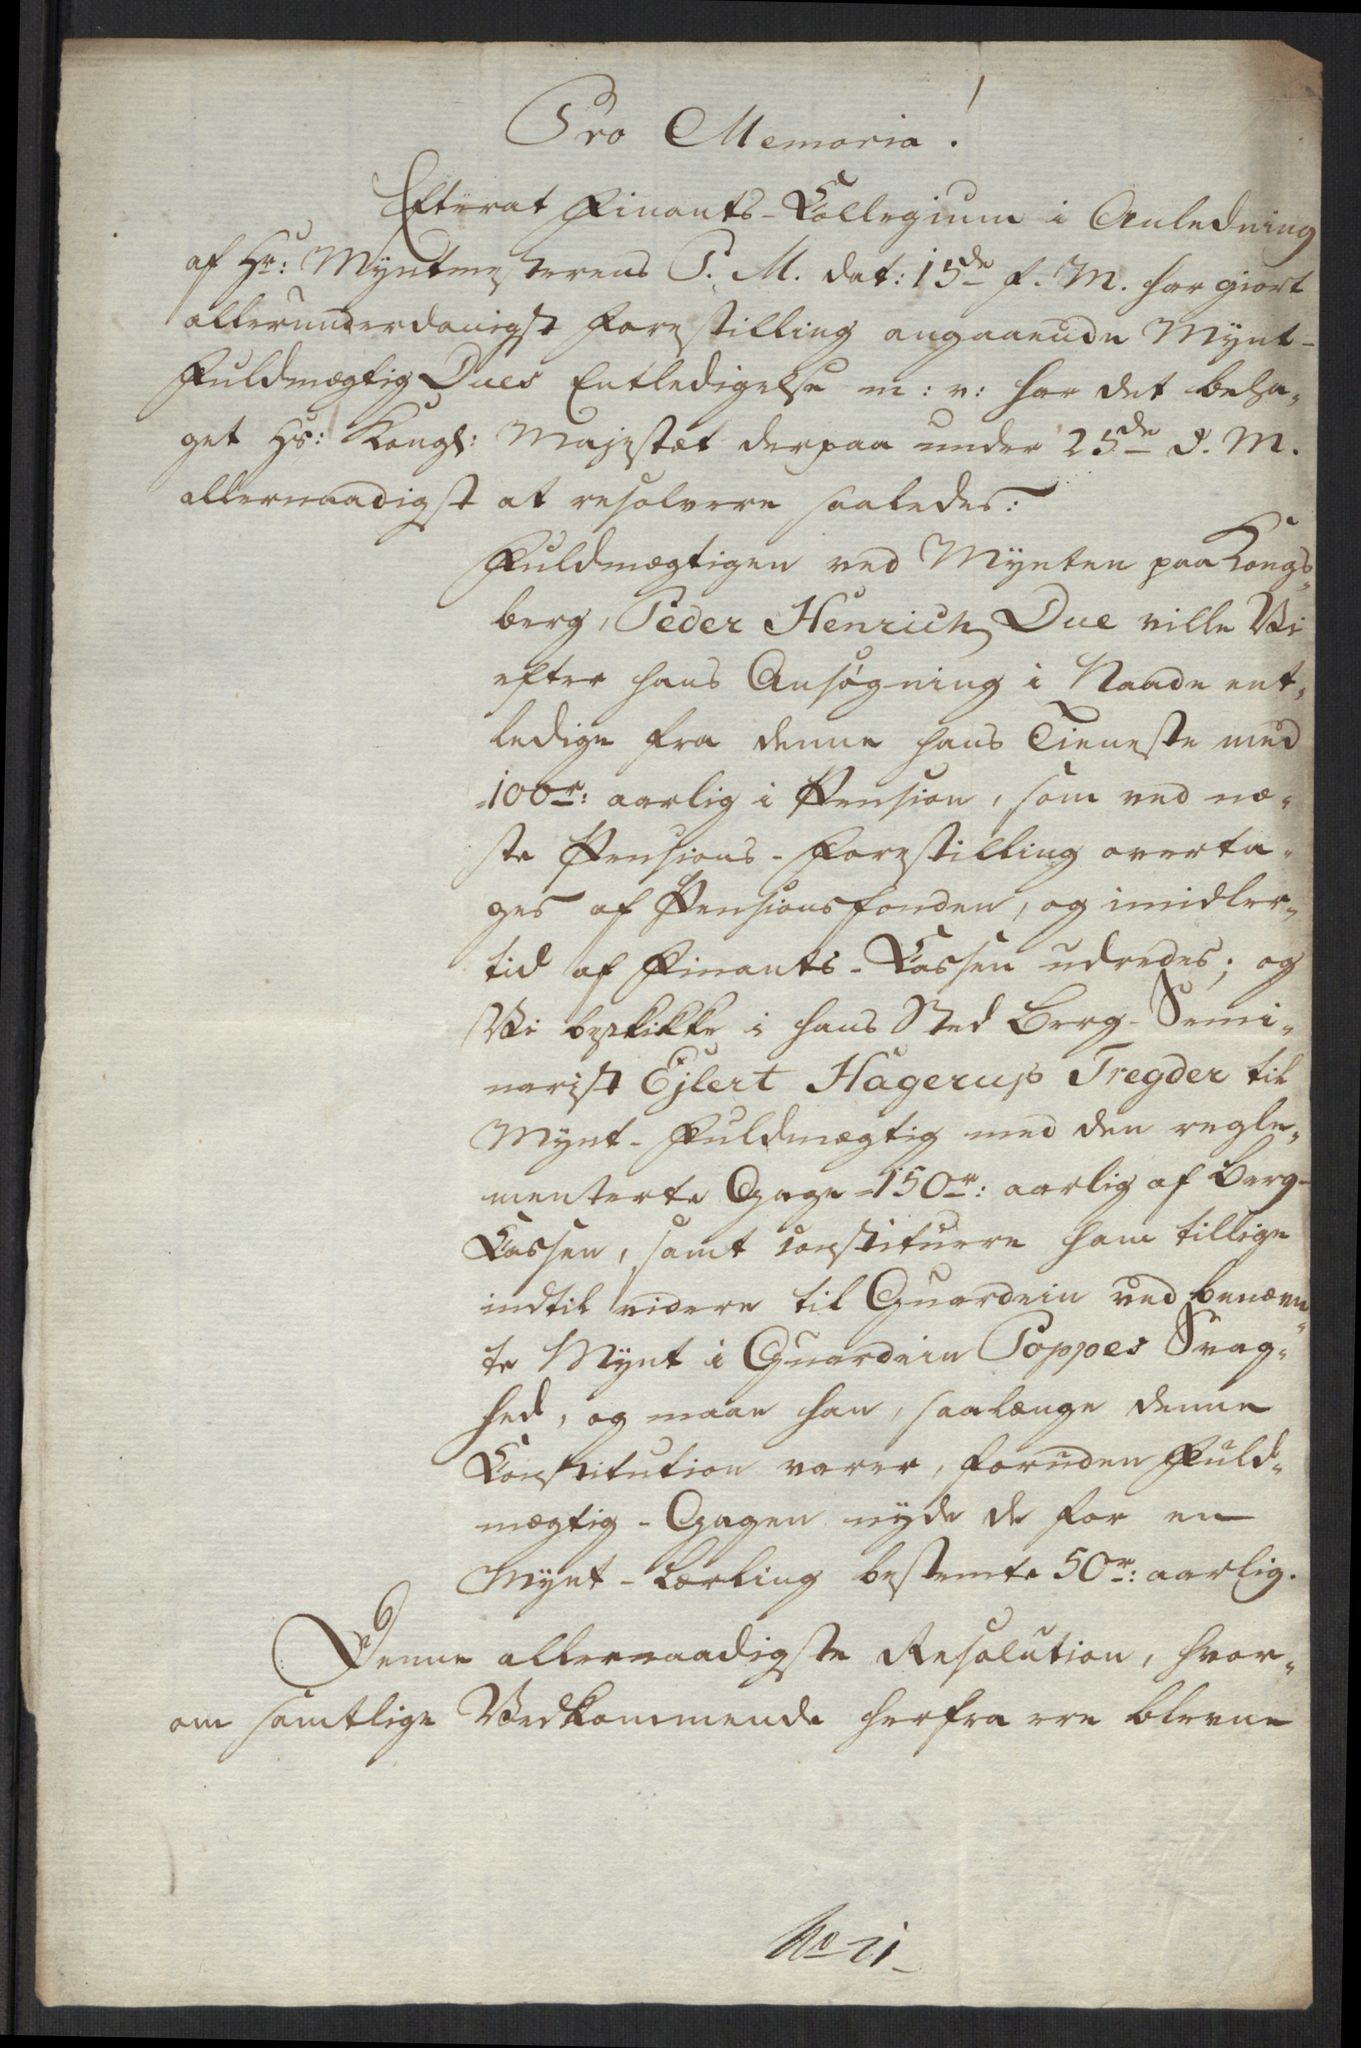 Pro Memoria!
Efterat Finants-Collegium i Anledning
af Hr: Myntmesterens P. M. dat: 15de f. M. har giort
allerunderdanigst Forestilling angaaende Mynt-
Fuldmægtig Dues Entledigelse m: v: har det beha-
get Hs: Kongl: Majestæt derpaa under 25de d. M.
allernaadigst at resolvere saaledes:
Fuldmægtigen ved Mynten paa Kongs-
berg, Peder Henrich Due ville Vi
efter hans Ansøgning i Naade ent-
ledige fra denne hans Tieneste med
100r: aarlig i Pension, som ved næ-
ste Pensions-Forestilling overta-
ges af Pensionsfonden, og imidler-
tid af Finants-Cassen udredes; og
Vi beskikke i hans Sted Berg-Semi-
narist Ejlert Hagerup Tregder til
Mynt-Fuldmægtig med den regle-
menterte Gage 150r: aarlig af Berg-
Cassen, samt constituere ham tillige
indtil videre til Guardein ved benævn-
te Mynt i Guardein Poppes Svag-
hed, og maae han, saalænge denne
Constitution varer, foruden Fuld-
mægtig-Gagen nyde de for en
Mynt-Lærling bestemte 50r: aarlig.
Denne allernaadigste Resolution, hvor-
om samtlige Vedkommende herfra ere blevne